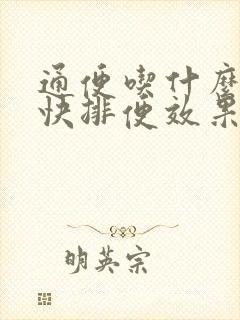 通便喫什麼
快排便效果
明英宗